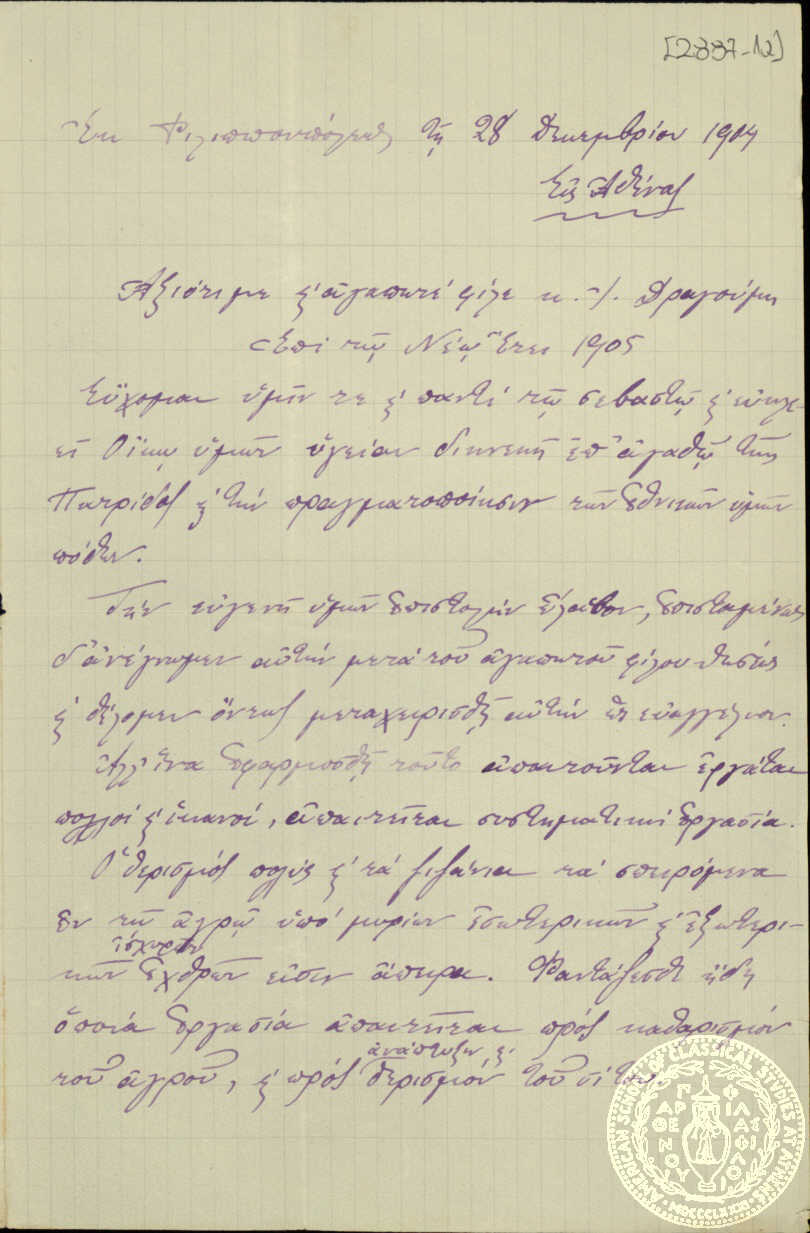 [2337-12]
Ἐκ Φιλιππουπόλεως τῇ 28 Δεκεμβρίου 1904
Εἰς Ἀθήνας
Ἀξιότιμε κ' ἀγαπητέ φίλε κ. Ι. Δραγούμη
Ἐπί τῷ Νέῳ Ἔτει 1905
Εὔχομαι ὑμῖν τε κ' παντί τῷ σεβαστῷ κ' εὐκλε-
εῖ Οἴκῳ ὑμῶν ὑγείαν διηνεκῆ ἐπ' ἀγαθῷ τῆς
Πατρίδος κ' τήν πραγματοποίησιν τῶν Ἐθνικῶν ὑμῶν
πόθων.
Τήν εὐγενῆ ὑμῶν ἐπιστολήν ἔλαβον, ἐπισταμένως
δ' ἀνέγνωμεν αὐτήν μετά τοῦ ἀγαπητοῦ φίλου
κ' θέλομεν ὄντως μεταχειρισθῇ αὐτήν ὡς εὐαγγέλιον.
Ἀλλ' ἵνα ἐφαρμοσθῇ τοῦτο ἀπαιτοῦνται ἐργάται
πολλοί κ' ἱκανοί, ἀπαιτεῖται συστηματική ἐργασία.
Ὁ θερισμός πολύς κ' τά ζιζάνια τά σπειρόμενα
ἐν τῷ ἀγρῷ ὑπό μυρίων ἐσωτερικῶν κ' ἐξωτερι-
ἰσχυρῶν
κῶν ἐχθρῶν εἰσίν ἄπειρα. Φαντάζεσθε ἤδη
ὁποία ἐργασία ἀπαιτεῖται πρός καθαρισμόν
ἀνάπτυξιν κ'
τοῦ ἀγροῦ, κ' πρός θερισμόν τοῦ σίτου.
AMERICAN SCHOOL OF CLASSICAL STUDIES AT ATHENS
MDCCCLXXXI
ΠΑΡΘΕΝΟΥ ΦΙΛΑΣ ΦΙΛΟΙ